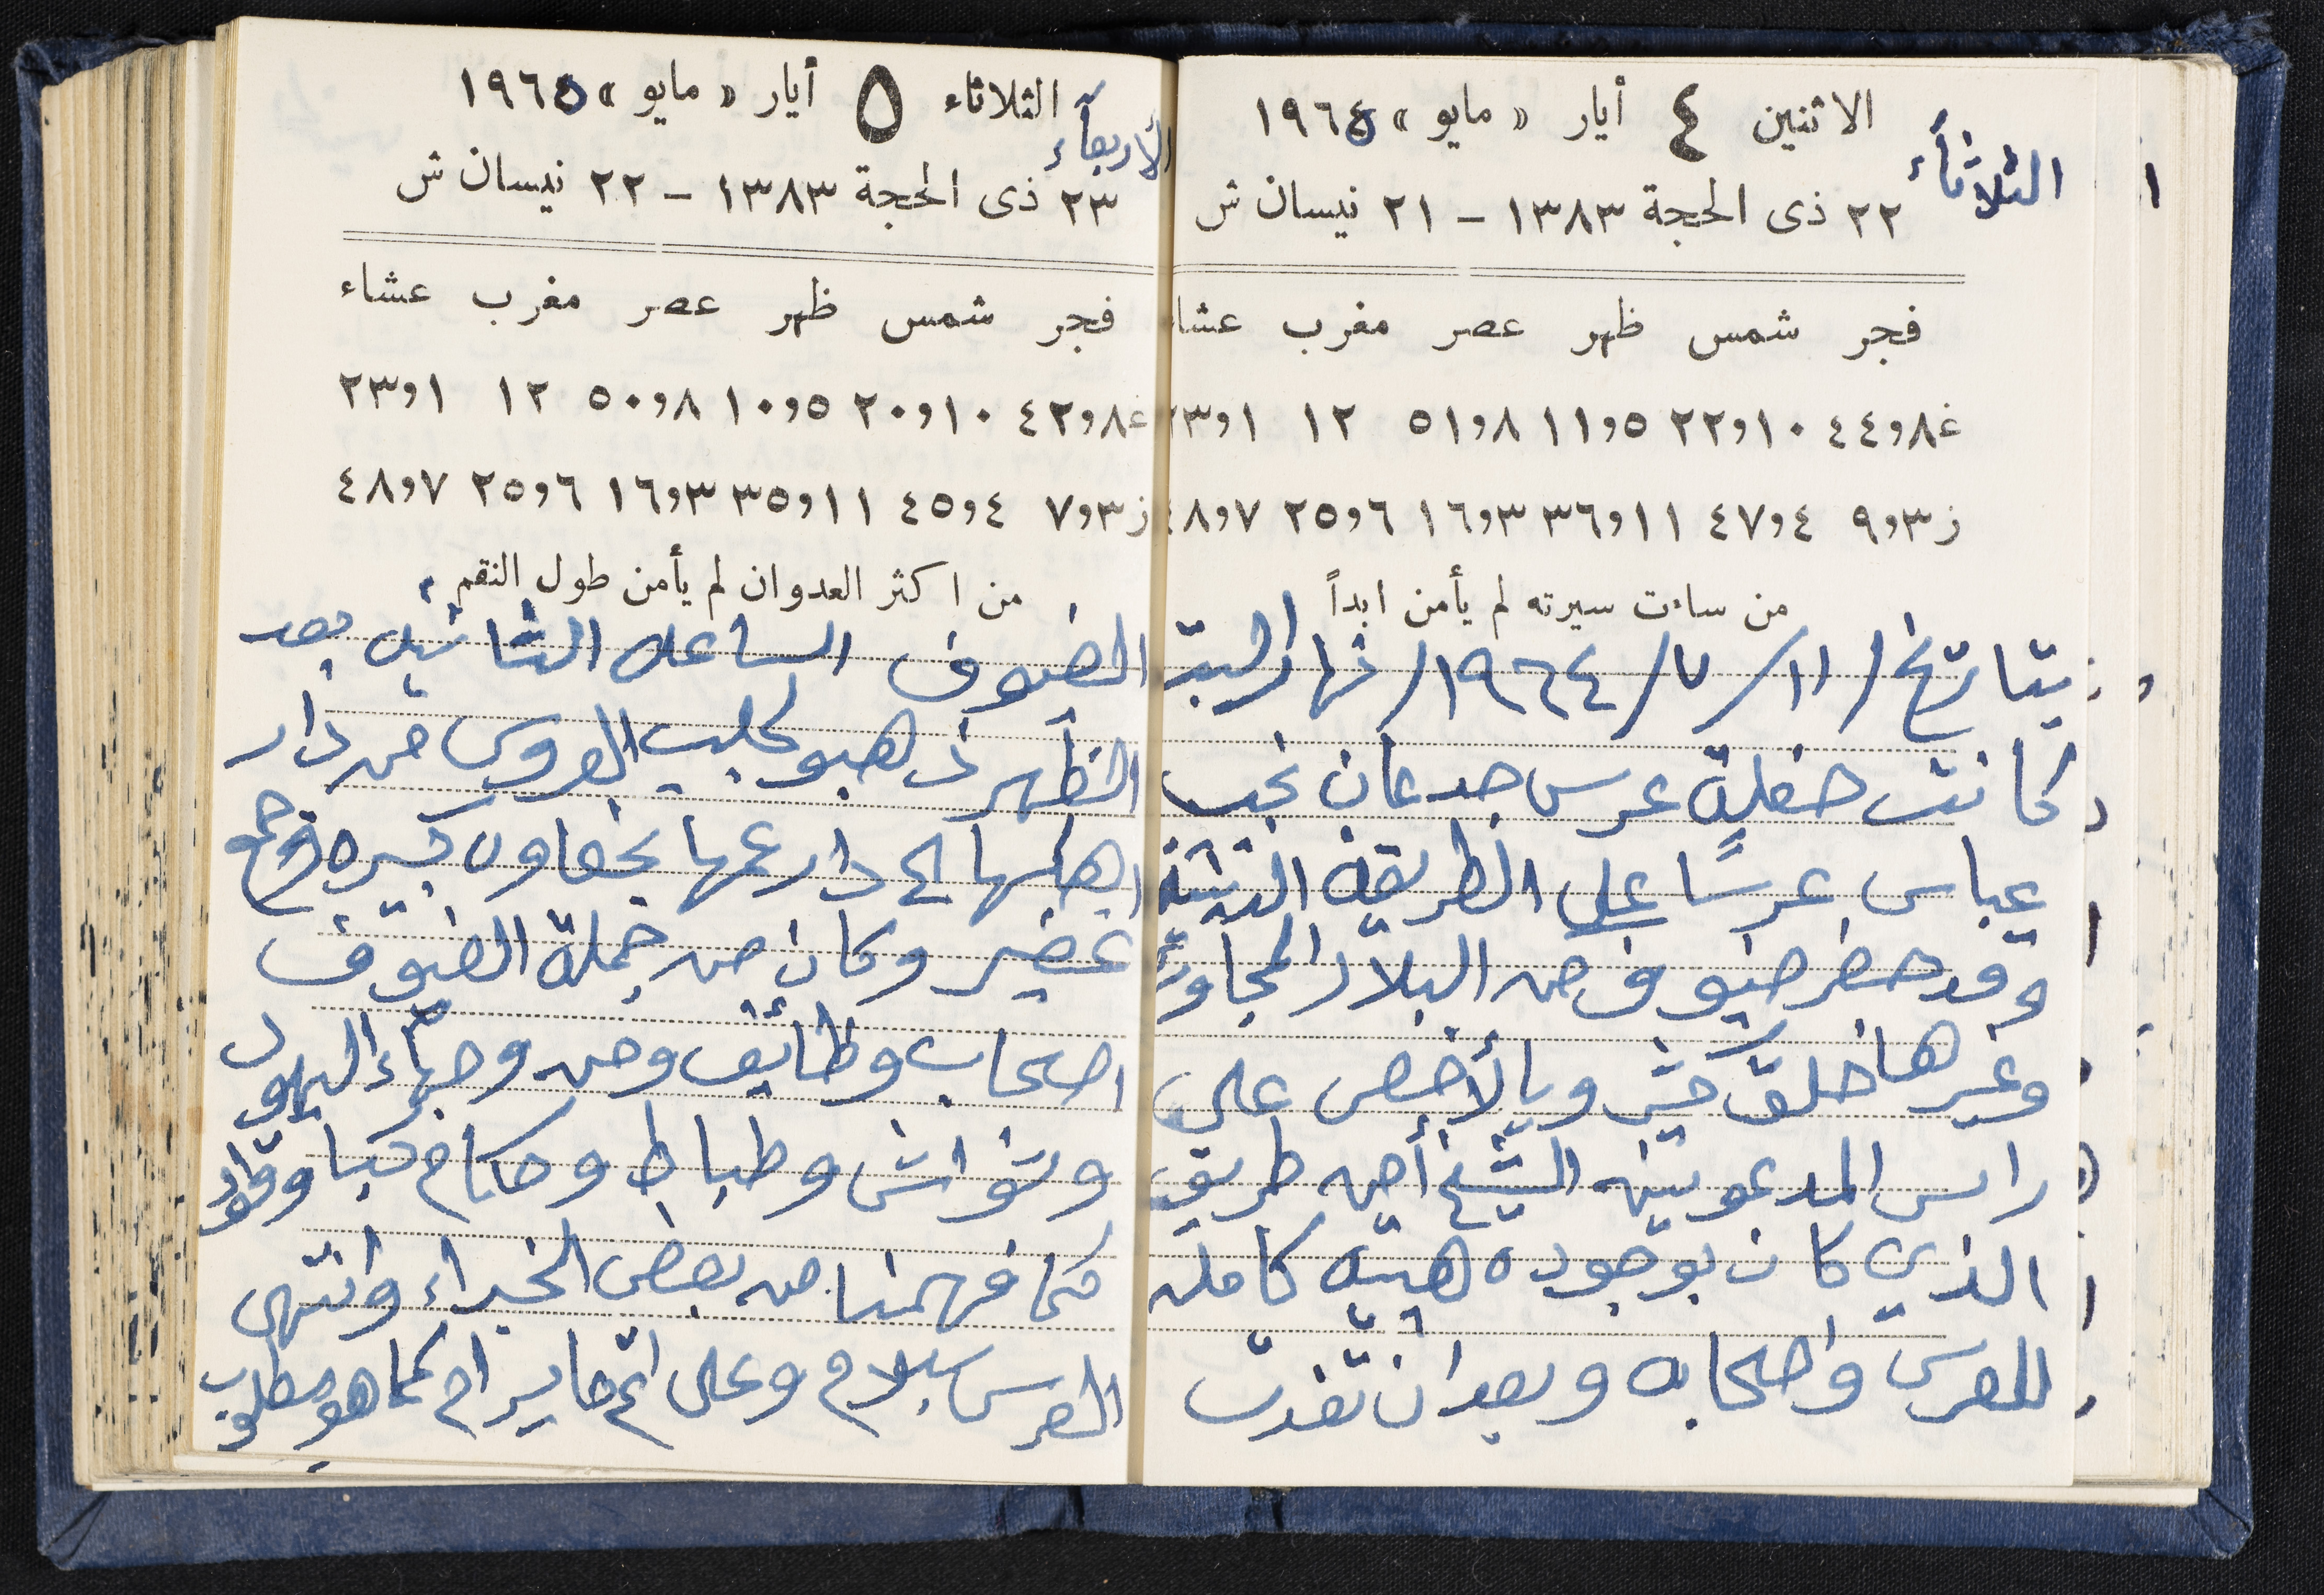 الاثنين ٤ أيار « مايو » ١٩٦٥
الثلاثآء
٢٢ ذى الحجة ١٣٨٣ – ٢١ نيسان ش
فجر شمس ظهر عصر مغرب عشا
غ ٨و٤٤ ١٠و٢٢ ٥و١١ ٨و٥١ ١٢ ١و٢٣
ز ٣و٩ ٤و٤٧ ١١و٣٦ ٣و١٦ ٦و٢٥ ٧و٤٨
من ساءت سيرته لم يأمن ابداً
بتاريخ / ١١ / ٧ / ١٩٦٤ / نهار السبت
كانت حفلة عرس جدعان نجيب
عباس عرسًا على الطريقه
وقد حضر ضيوف من البلاد المجاورة
وغيرها خلق كثير وبالأخص على
راس المدعويين الشيخ أمين طريف
الذي كان بوجوده هيبة كامله
للعرس واصحابه وبعد ان تغدت
الثلاثاء ٥ أيار « مايو » ١٩٦٥
الأربعآء
٢٣ ذى الحجة ١٣٨٣ – ٢٢ نيسان ش
فجر شمس ظهر عصر مغرب عشاء
غ ٨و٤٢ ١٠و٢٠ ٥و١٠ ٨و٥٠ ١٢ ١و٢٣
ز ٣و٧ ٤و٤٥ ١١و٣٥ ٣و١٦ ٦و٢٥ ٧و٤٨
من اكثر العدوان لم يأمن طول النقم
الضيوف الساعه الثانيه بعد
الظهر ذهبو لجليب العروس من دار
اهلها الى دار عمها بحفاوه كبيره وجمع
غفير وكان من جملة الضيوف
اصحاب وظائف ومن وجهآء اليهود
وشواش وظباط وحكام حيفا
كما فهمنا من بعض الخبراء وانتهى
العرس بسلام وعلى اتم ما يرام كما هو مطلوب